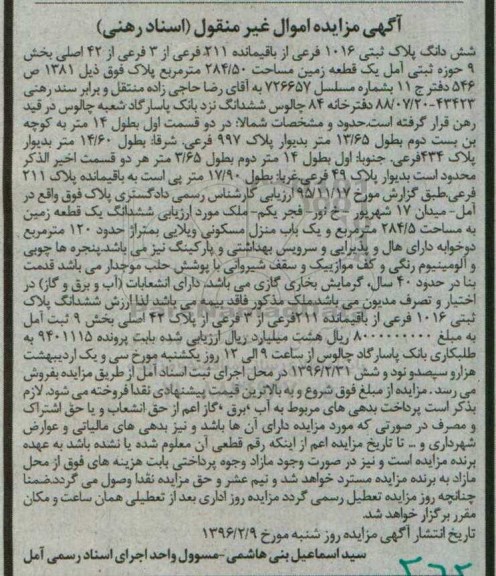 آگهی مزایده اموال غیر منقول (اسناد رهنی)
شش دانگ پلاک ثبتی ۱۰۱۶ فرعی از باقیمانده ۲۱۱، فرعی از ۳ فرعی از ۴۲ اصلی بخش
۹ حوزه ثبتی آمل یک قطعه زمین مساحت ۲۸۴/۵۰ مترمربع پلاک فوق ذیل ۱۳۸۱ ص
۵۴۶ دفتر ج ۱۱ بشماره مسلسل ۷۲۶۶۵۷ به آقای رضا حاجی زاده منتقل و برابر سند رهنی
۴۳۴۲۳-۸۸/۰۷/۲۰ دفترخانه ۸۴ چالوس ششدانگ نزد بانک پاسارگاد شعبه چالوس در قید
رهن قرار گرفته است.حدود و مشخصات شمالا: در دو قسمت اول بطول ۱۴ متر به کوچه
بن بست دوم بطول ۱۳/۶۵ متر بدیوار پلاک ۹۹۷ فرعی. شرقا: بطول ۱۴/۶۰ متر بدیوار
پلاک ۴۳۴فرعی. جنوبا: اول بطول ۱۴ متر دوم بطول ۳/۶۵ متر هر دو قسمت اخیر الذکر
محدود است بدیوار پلاک ۴۹ فرعی.غربا: بطول ۱۷/۹۰ متر پی است به باقیمانده پلاک ۲۱۱
فرعی.طبق گزارش مورخ ۹۵/۱۱/۱۷ ارزیابی کارشناس رسمی دادگستری پلاک فوق واقع در
آمل- میدان ۱۷ شهریور - خ نور- فجر یکم- ملک مورد ارزیابی ششدانگ یک قطعه زمین
به مساحت ۲۸۴/۵ مترمربع و یک باب منزل مسکونی ویلایی بمتراژ حدود ۱۲۰ مترمربع
دوخوابه دارای هال و پذیرایی و سرویس بهداشتی و پارکینگ نیز می باشد.پنجره ها چوبی
و آلومینیوم رنگی و کف موزاییک و سقف شیروانی با پوشش حلب موجدار می باشد قدمت
بنا در حدود ۴۰ سال، گرمایش بخاری گازی می باشد. دارای انشعابات (آب و برق و گاز) در
اختیار و تصرف مدیون می باشد.ملک مذکور فاقد بیمه می باشد لذا ارزش ششدانگ پلاک
ثبتی ۱۰۱۶ فرعی از باقیمانده ۲۱۱ فرعی از ۳ فرعی از پلاک ۴۲ اصلی بخش ۹ ثبت آمل
به مبلغ ۸۰۰۰۰۰۰۰۰۰ ریال هشت میلیارد ریال ارزیابی شده بابت پرونده ۹۴۰۱۱۱۵ به
طلبکاری بانک پاسارگاد چالوس از ساعت ۹ الی ۱۲ روز یکشنبه مورخ سی و یک اردیبهشت
هزار و سیصد و نود و شش ۱۳۹۶/۲/۳۱ در محل اجرای ثبت اسناد آمل از طریق مزایده بفروش
می رسد . مزایده از مبلغ فوق شروع و به بالاترین قیمت پیشنهادی نقدا فروخته می شود. لازم
بذکر است پرداخت بدهی های مربوط به آب ،برق ،گاز اعم از حق انشعاب و یا حق اشتراک
و مصرف در صورتی که مورد مزایده دارای آن ها باشد و نیز بدهی های مالیاتی و عوارض
شهرداری و ... تا تاریخ مزایده اعم از اینکه رقم قطعی آن معلوم شده یا نشده باشد به عهده
برنده مزایده است و نیز در صورت وجود مازاد وجوه پرداختی بابت هزینه های فوق از محل
مازاد به برنده مزایده مسترد خواهد شد و نیم عشر و حق مزایده نقدا وصول می گردد.ضمنا
چنانچه روز مزایده تعطیل رسمی گردد مزایده روز اداری بعد از تعطیلی همان ساعت و مکان
مقرر برگزار خواهد شد.
تاریخ انتشار آگهی مزایده روز شنبه مورخ ۱۳۹۶/۲/۹
سید اسماعیل بنی هاشمی-مسوول واحد اجرای اسناد رسمی آمل